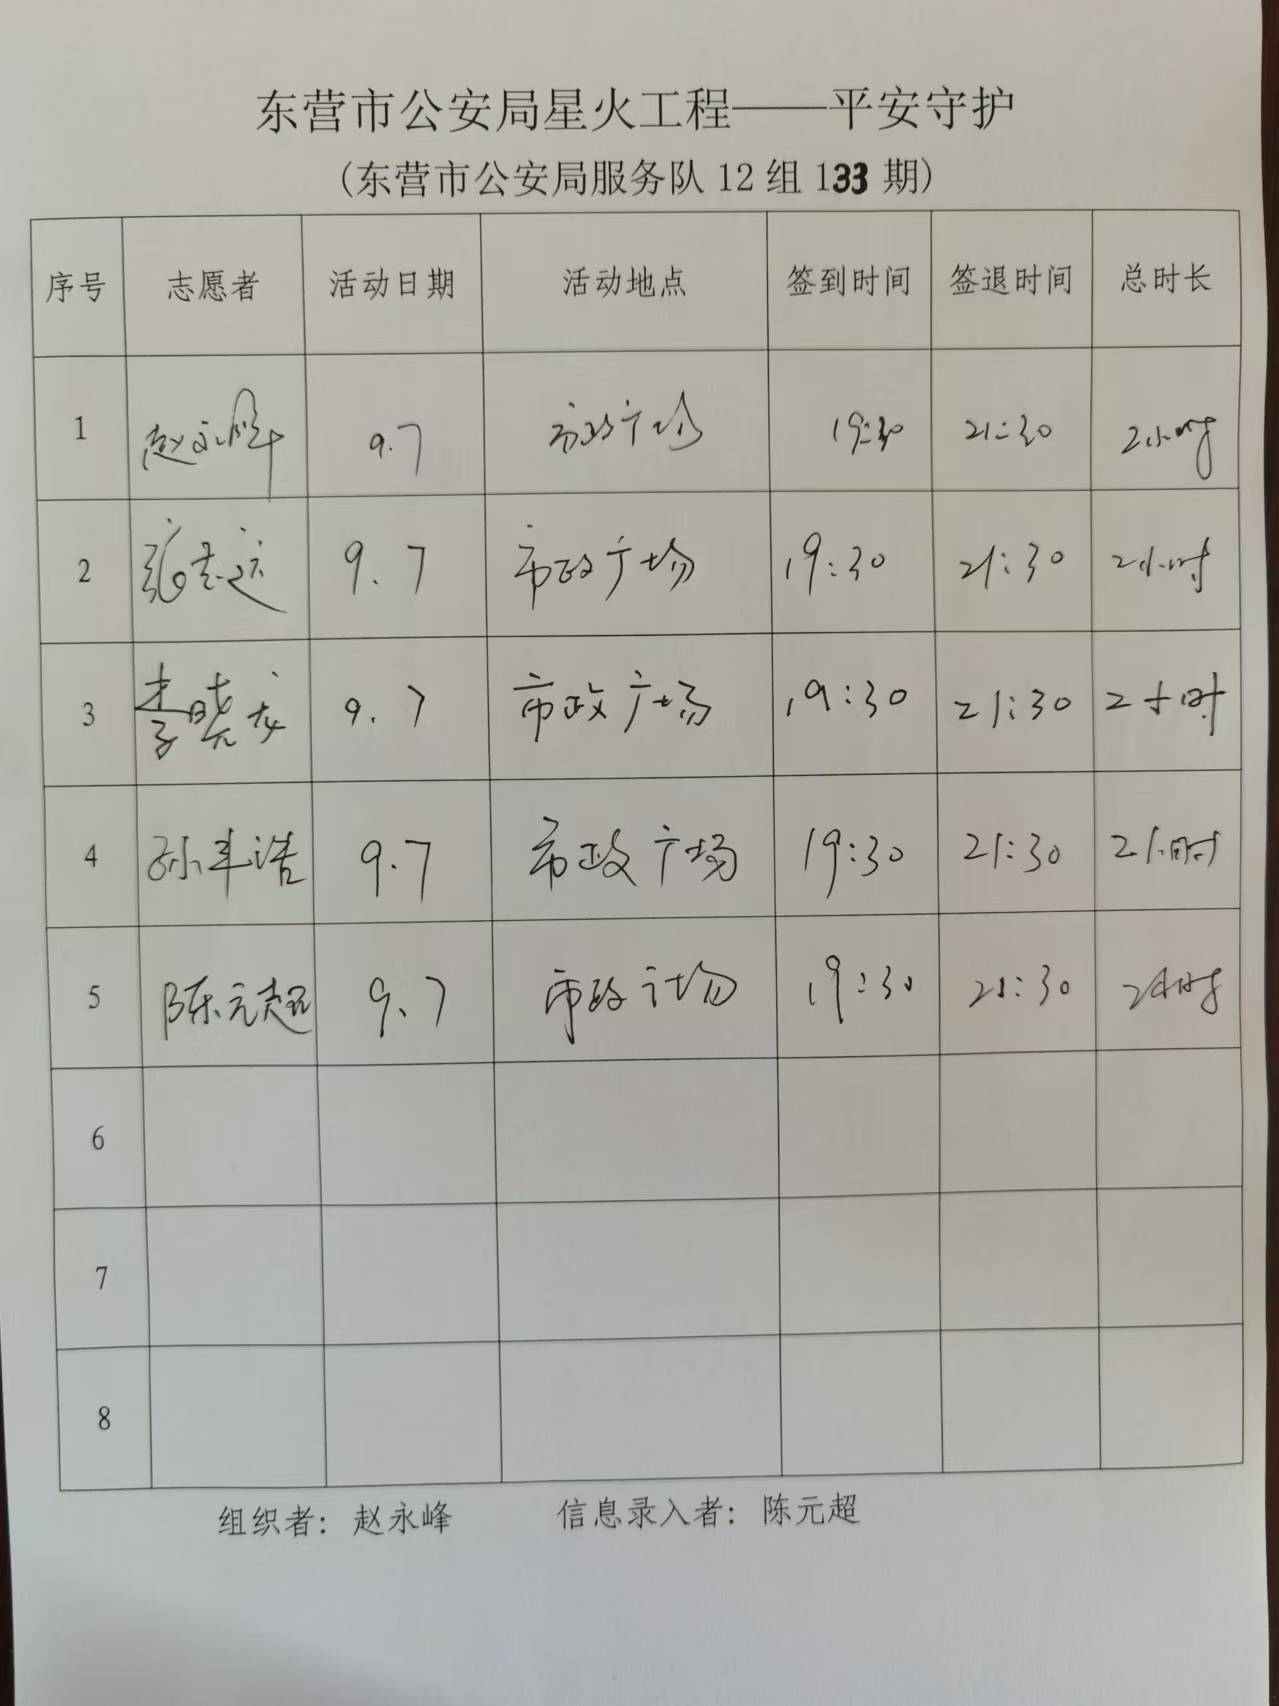 东营市公安局星火工程——平安守护
(东营市公安局服务队12组133期)
序号 志愿者 活动日期 活动地点 签到时间 签退时间 总时长
1 赵永峰 9.7 市政广场 19:30 21:30 2小时
2 张志远 9.7 市政广场 19:30 21:30 2小时
3 李晓龙 9.7 市政广场 19:30 21:30 2小时
4 孙丰浩 9.7 市政广场 19:30 21:30 2小时
5 陈元超 9.7 市政广场 19:30 21:30 2小时
6
7
8
组织者：赵永峰 信息录入者：陈元超